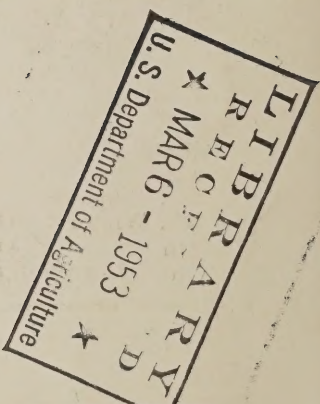 LIBRARY
RECE D
★ MAR 6 - 1953 ★
U. S. Department of Agriculture